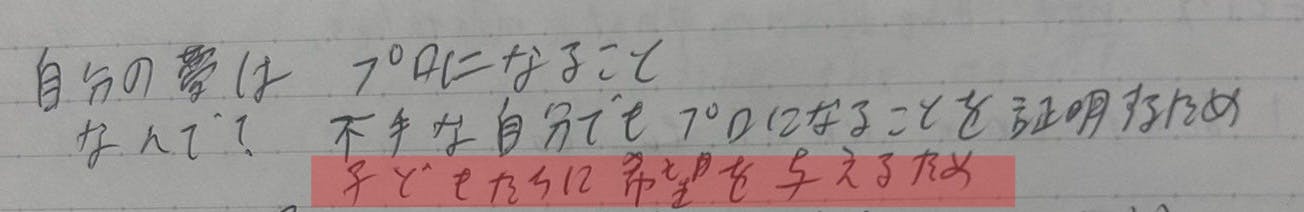 自分の夢は プロになること
なんで? 下手な自分でもプロになることを証明するため
子どもたちに希望を与えるため